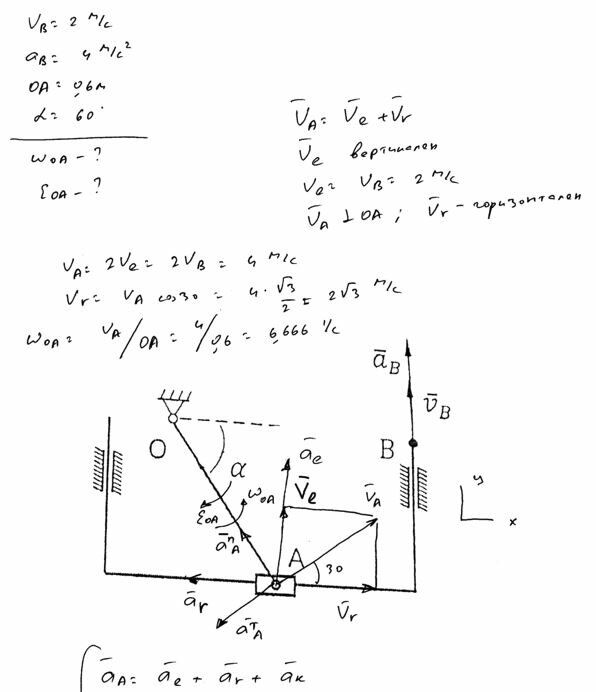 V_B = 2 м/с
a_B = 4 м/с²
OA = 0,6м
α = 60°
ω_OA - ?
ε_OA - ?
V̄_A = V̄_e + V̄_r
V̄_e вертикален
V_e = V_B = 2 м/с
V̄_A ⊥ OA ; V̄_r - горизонтален
V_A = 2V_e = 2V_B = 4 м/с
V_r = V_A cos30 = 4 · √3/2 = 2√3 м/с
ω_OA = V_A/OA = 4/0,6 = 6,666 1/с
ā_B
V̄_B
O
α
ā_e
B
V̄_e
V̄_A
y
x
ε_OA
ω_OA
ā^n_A
A
30
ā_r
V̄_r
ā^τ_A
ā_A = ā_e + ā_r + ā_к